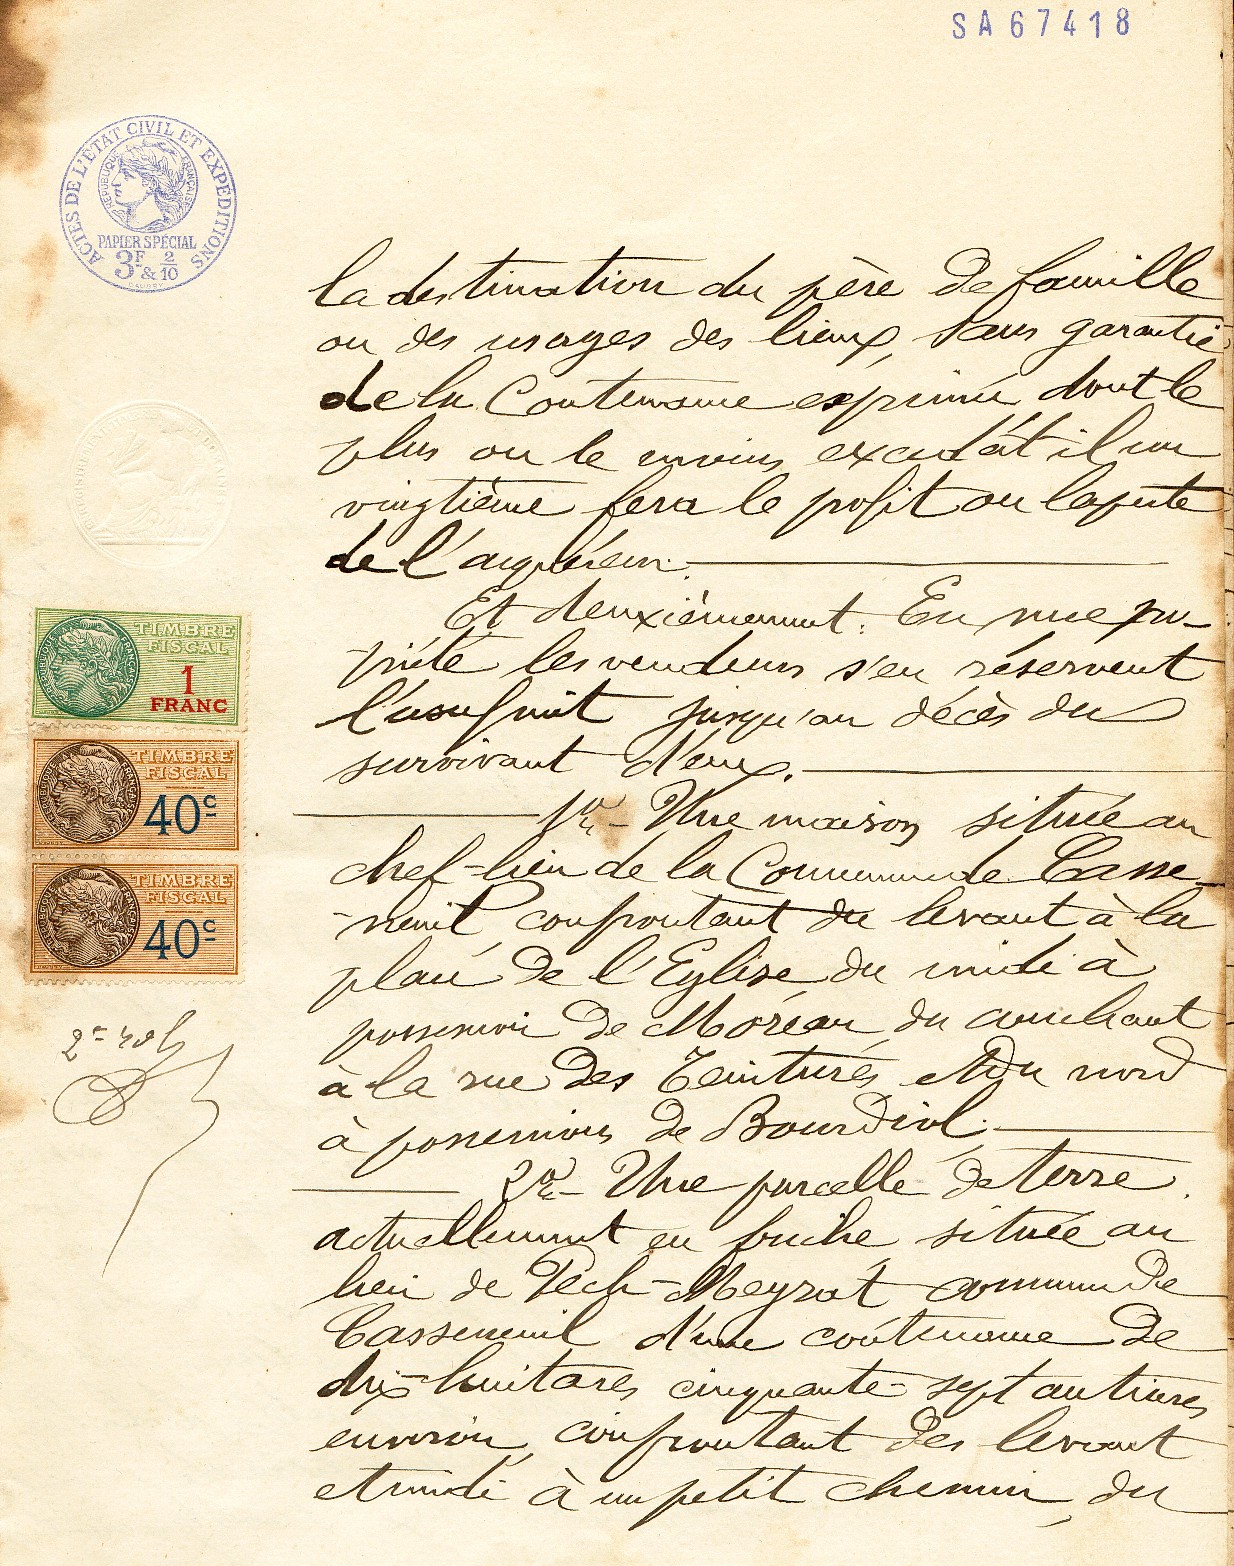 SA67418
ACTES DE L'ÉTAT CIVIL ET EXPÉDITIONS
RÉPUBLIQUE FRANÇAISE
PAPIER SPÉCIAL
3F & 2/10
la destination du père de famille
ou des usages des lieux, sans garantie
de la contenance exprimée dont le
plus ou le moins excédât il un
vingtième fera le profit ou la perte
de l'acquéreur.
Et deuxièmement : En nue pro-
-priété les vendeurs s'en réservent
l'usufruit jusqu'au décès du
survivant d'eux.
1ent_ Une maison située au
chef-lieu de la Commune de Casse-
-neuil, confrontant du levant à la
place de l'Eglise, du midi à
possession de Moréau, du couchant
à la rue des Teintures, et du nord
à possession de Bourdiol.
2ent_ Une parcelle de terre
actuellement en friche, située au
lieu de Pech-Meyrat commune de
Casseneuil d'une contenance de
dix-huit ares cinquante-sept centiares
environ, confrontant des levant
et midi à un petit chemin, du
TIMBRE
FISCAL
1
FRANC
TIMBRE
FISCAL
40c
TIMBRE
FISCAL
40c